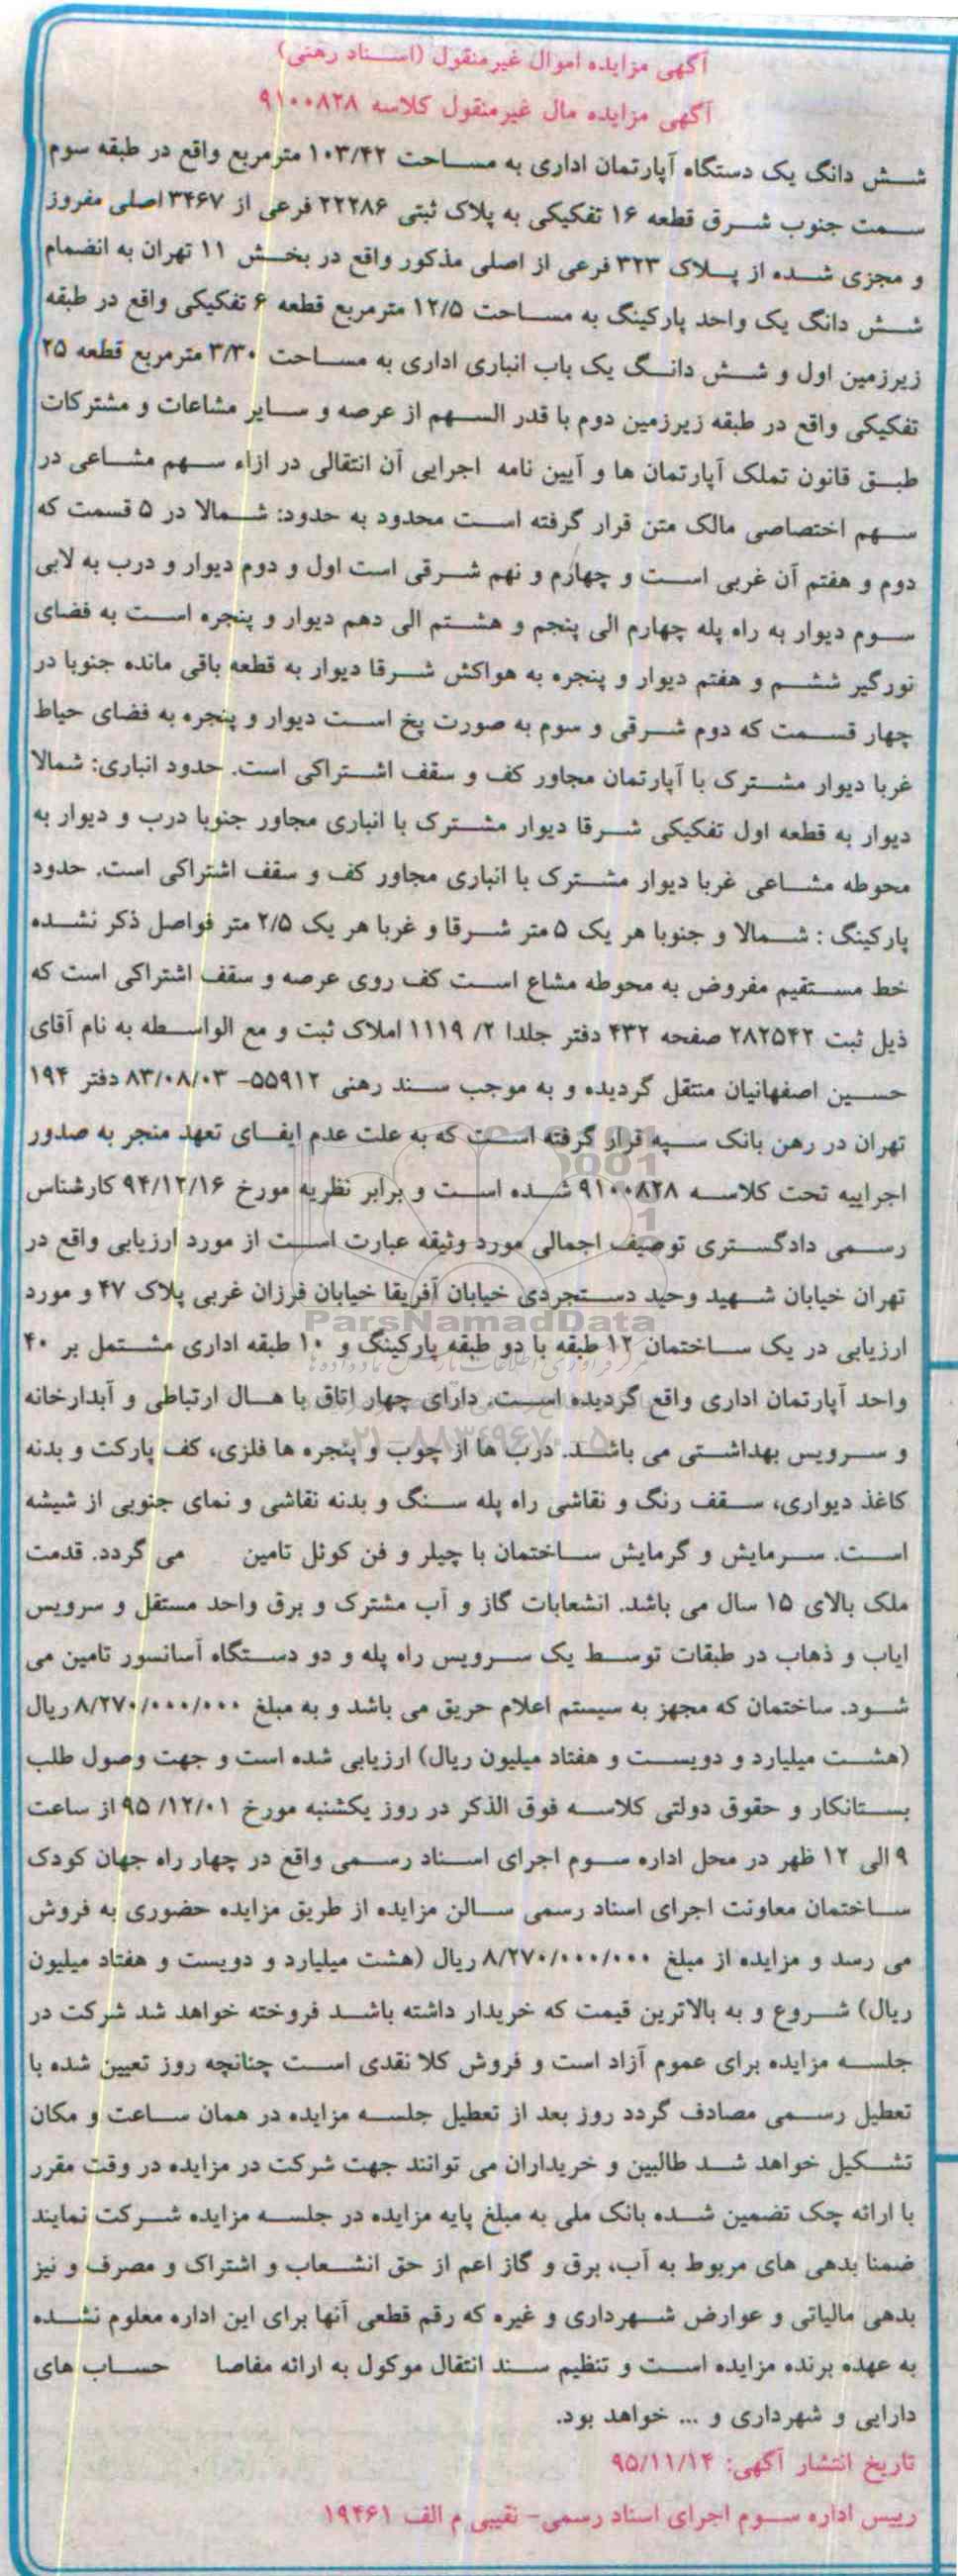 آگهی مزایده اموال غیرمنقول (اسناد رهنی)
آگهی مزایده مال غیرمنقول کلاسه ۹۱۰۰۸۲۸
شش دانگ یک دستگاه آپارتمان اداری به مساحت ۱۰۳/۴۲ مترمربع واقع در طبقه سوم
سمت جنوب شرق قطعه ۱۶ تفکیکی به پلاک ثبتی ۲۲۲۸۶ فرعی از ۳۴۶۷ اصلی مفروز
و مجزی شده از پلاک ۳۲۳ فرعی از اصلی مذکور واقع در بخش ۱۱ تهران به انضمام
شش دانگ یک واحد پارکینگ به مساحت ۱۲/۵ مترمربع قطعه ۶ تفکیکی واقع در طبقه
زیرزمین اول و شش دانگ یک باب انباری اداری به مساحت ۳/۳۰ مترمربع قطعه ۲۵
تفکیکی واقع در طبقه زیرزمین دوم با قدر السهم از عرصه و سایر مشاعات و مشترکات
طبق قانون تملک آپارتمان ها و آیین نامه اجرایی آن انتقالی در ازاء سهم مشاعی در
سهم اختصاصی مالک متن قرار گرفته است محدود به حدود: شمالا در ۵ قسمت که
دوم و هفتم آن غربی است و چهارم و نهم شرقی است اول و دوم دیوار و درب به لابی
سوم دیوار به راه پله چهارم الی پنجم و هشتم الی دهم دیوار و پنجره است به فضای
نورگیر ششم و هفتم دیوار و پنجره به هواکش شرقا دیوار به قطعه باقی مانده جنوبا در
چهار قسمت که دوم شرقی و سوم به صورت پخ است دیوار و پنجره به فضای حیاط
غربا دیوار مشترک با آپارتمان مجاور کف و سقف اشتراکی است. حدود انباری: شمالا
دیوار به قطعه اول تفکیکی شرقا دیوار مشترک با انباری مجاور جنوبا درب و دیوار به
محوطه مشاعی غربا دیوار مشترک با انباری مجاور کف و سقف اشتراکی است. حدود
پارکینگ : شمالا و جنوبا هر یک ۵ متر شرقا و غربا هر یک ۲/۵ متر فواصل ذکر نشده
خط مستقیم مفروض به محوطه مشاع است کف روی عرصه و سقف اشتراکی است که
ذیل ثبت ۲۸۲۵۴۲ صفحه ۴۳۲ دفتر جلدا ۲/ ۱۱۱۹ املاک ثبت و مع الواسطه به نام آقای
حسین اصفهانیان منتقل گردیده و به موجب سند رهنی ۵۵۹۱۲- ۸۳/۰۸/۰۳ دفتر ۱۹۴
تهران در رهن بانک سپه قرار گرفته است که به علت عدم ایفای تعهد منجر به صدور
اجراییه تحت کلاسه ۹۱۰۰۸۲۸ شده است و برابر نظریه مورخ ۹۴/۱۲/۱۶ کارشناس
رسمی دادگستری توصیف اجمالی مورد وثیقه عبارت است از مورد ارزیابی واقع در
تهران خیابان شهید وحید دستجردی خیابان آفریقا خیابان فرزان غربی پلاک ۴۷ و مورد
ParsNamadData
ارزیابی در یک ساختمان ۱۲ طبقه با دو طبقه پارکینگ و ۱۰ طبقه اداری مشتمل بر ۴۰
واحد آپارتمان اداری واقع گردیده است. دارای چهار اتاق با هال ارتباطی و آبدارخانه
و سرویس بهداشتی می باشد. درب ها از چوب و پنجره ها فلزی، کف پارکت و بدنه
۰۲۱-۸۸۳۴۹۶۷۰-۵
کاغذ دیواری، سقف رنگ و نقاشی راه پله سنگ و بدنه نقاشی و نمای جنوبی از شیشه
است. سرمایش و گرمایش ساختمان با چیلر و فن کوئل تامین می گردد. قدمت
ملک بالای ۱۵ سال می باشد. انشعابات گاز و آب مشترک و برق واحد مستقل و سرویس
ایاب و ذهاب در طبقات توسط یک سرویس راه پله و دو دستگاه آسانسور تامین می
شود. ساختمان که مجهز به سیستم اعلام حریق می باشد و به مبلغ ۸/۲۷۰/۰۰۰/۰۰۰ ریال
(هشت میلیارد و دویست و هفتاد میلیون ریال) ارزیابی شده است و جهت وصول طلب
بستانکار و حقوق دولتی کلاسه فوق الذکر در روز یکشنبه مورخ ۹۵/۱۲/۰۱ از ساعت
۹ الی ۱۲ ظهر در محل اداره سوم اجرای اسناد رسمی واقع در چهار راه جهان کودک
ساختمان معاونت اجرای اسناد رسمی سالن مزایده از طریق مزایده حضوری به فروش
می رسد و مزایده از مبلغ ۸/۲۷۰/۰۰۰/۰۰۰ ریال (هشت میلیارد و دویست و هفتاد میلیون
ریال) شروع و به بالاترین قیمت که خریدار داشته باشد فروخته خواهد شد شرکت در
جلسه مزایده برای عموم آزاد است و فروش کلا نقدی است چنانچه روز تعیین شده با
تعطیل رسمی مصادف گردد روز بعد از تعطیل جلسه مزایده در همان ساعت و مکان
تشکیل خواهد شد طالبین و خریداران می توانند جهت شرکت در مزایده در وقت مقرر
با ارائه چک تضمین شده بانک ملی به مبلغ پایه مزایده در جلسه مزایده شرکت نمایند
ضمنا بدهی های مربوط به آب، برق و گاز اعم از حق انشعاب و اشتراک و مصرف و نیز
بدهی مالیاتی و عوارض شهرداری و غیره که رقم قطعی آنها برای این اداره معلوم نشده
به عهده برنده مزایده است و تنظیم سند انتقال موکول به ارائه مفاصا حساب های
دارایی و شهرداری و ... خواهد بود.
تاریخ انتشار آگهی: ۹۵/۱۱/۱۴
رییس اداره سوم اجرای اسناد رسمی- نقیبی م الف ۱۹۴۶۱